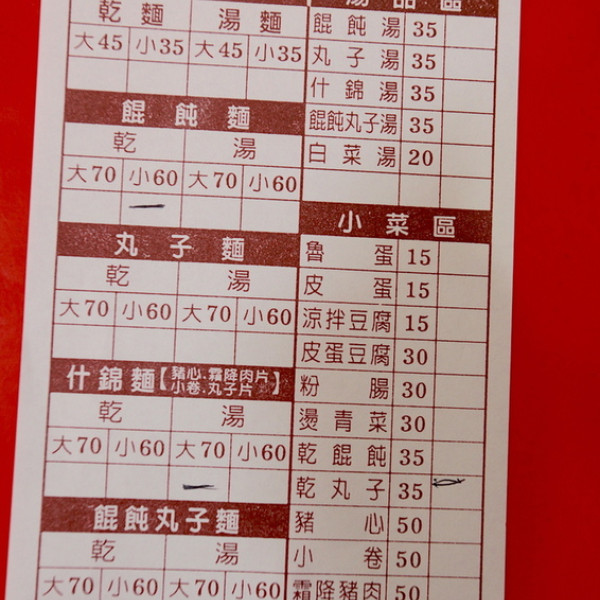 乾麵 湯麵
大45 小35 大45 小35
餛飩麵
乾 湯
大70 小60 大70 小60
丸子麵
乾 湯
大70 小60 大70 小60
什錦麵【豬心.霜降肉片
小卷.丸子片】
乾 湯
大70 小60 大70 小60
餛飩丸子麵
乾 湯
大70 小60 大70 小60
湯品區
餛飩湯 35
丸子湯 35
什錦湯 35
餛飩丸子湯 35
白菜湯 20
小菜區
魯蛋 15
皮蛋 15
涼拌豆腐 15
皮蛋豆腐 30
粉腸 30
燙青菜 30
乾餛飩 35
乾丸子 35
豬心 50
小卷 50
霜降豬肉 50